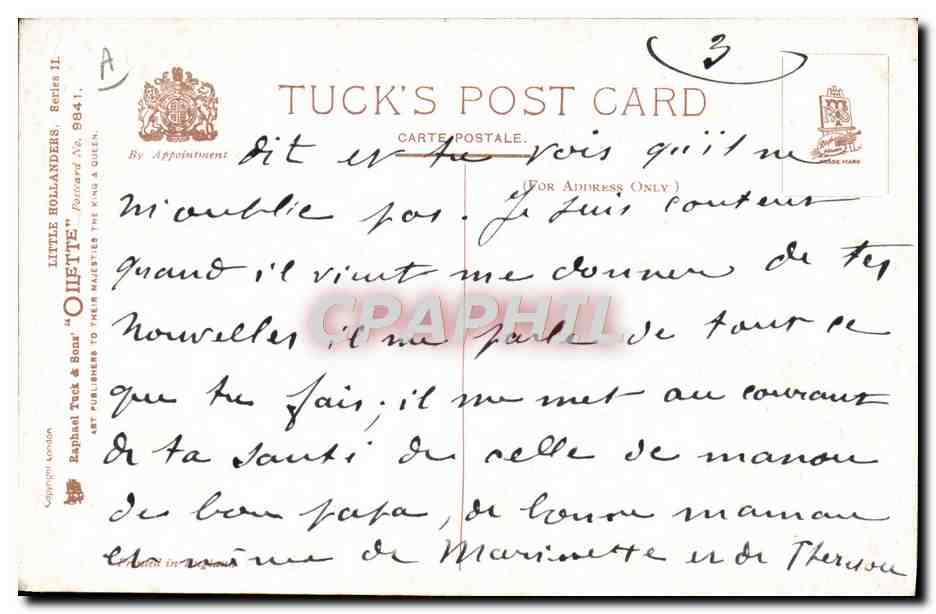 A
3
TUCK'S POST CARD
CARTE POSTALE.
By Appointment
(FOR ADDRESS ONLY)
TRADE MARK
LITTLE HOLLANDERS, Series II.
Raphael Tuck & Sons' "OILETTE" Postcard No. 9841.
ART PUBLISHERS TO THEIR MAJESTIES THE KING & QUEEN.
Copyright London
dit et tu vois qu'il ne
m'oublie pas. Je suis content
quand il vient me donner de tes
nouvelles il me parle de tout ce
que tu fais, il me met au courant
de ta santé de celle de maman
de bon papa, de bonne maman
et même de Marinette et de
Printed in England
CPAPHIL